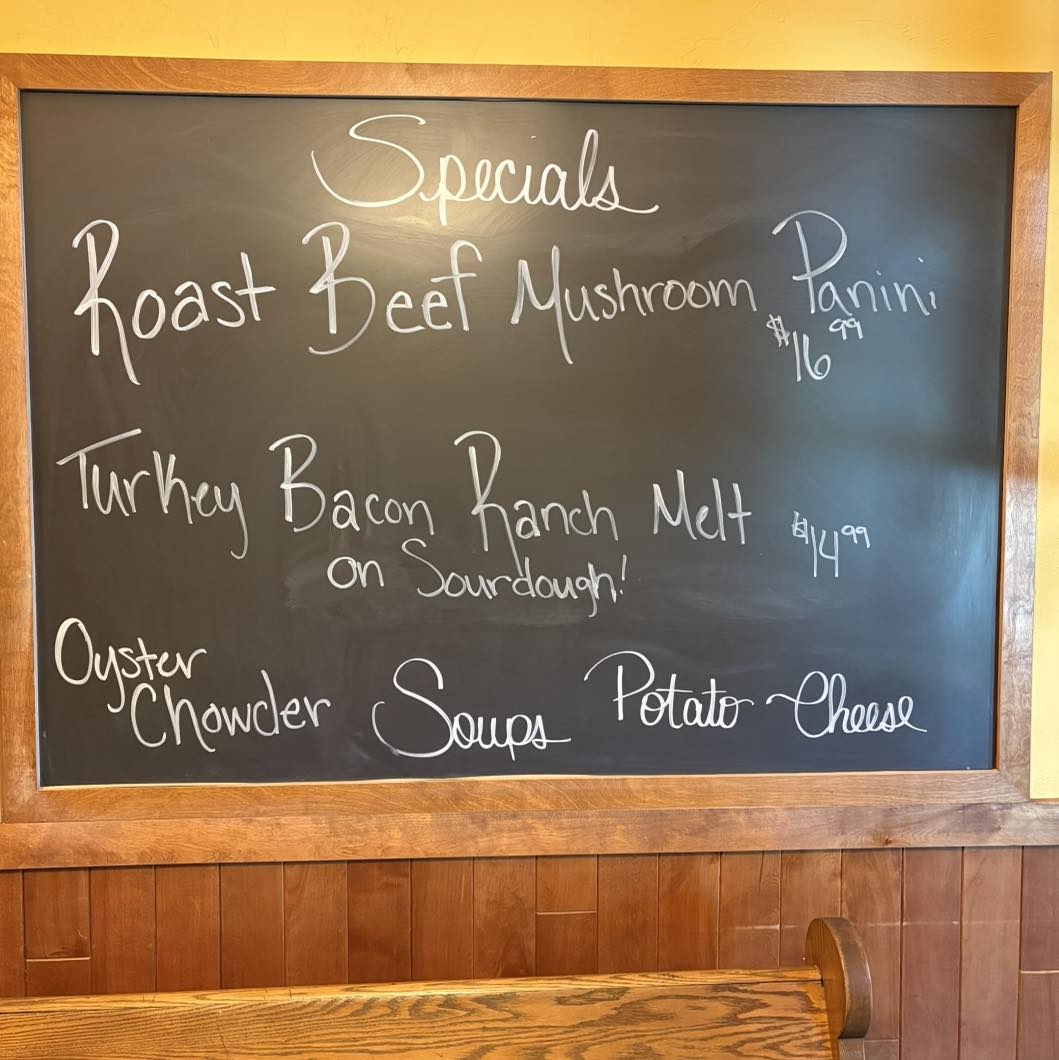 Specials
Roast Beef Mushroom Panini
$16.99
Turkey Bacon Ranch Melt $14.99
on Sourdough!
Oyster
Chowder Soups Potato Cheese